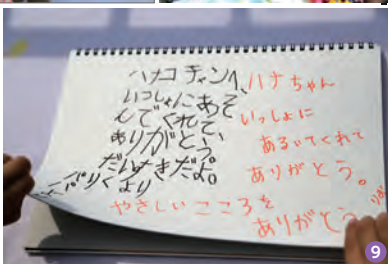 ハナコチャンへ、
いっしょにあそ
んでくれて、
ありがとう。
だいすきだよ。
ハナちゃん
いっしょに
あるいてくれて
ありがとう。
やさしいこころを
ありがとう。
9